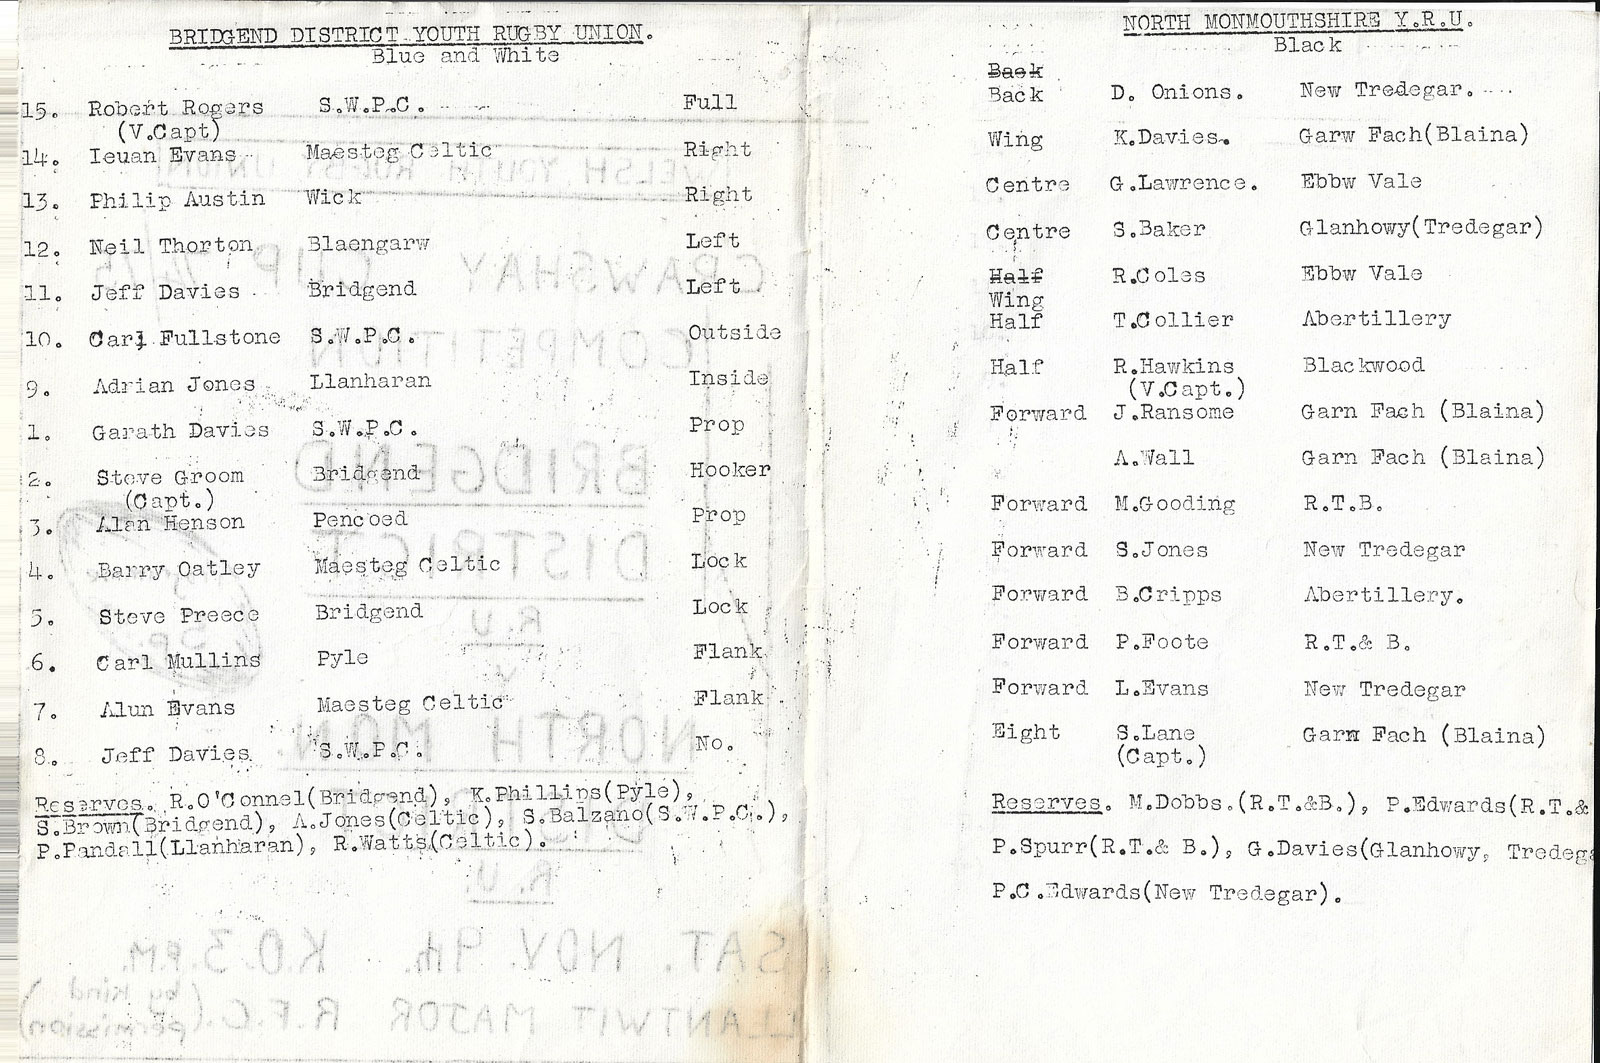 BRIDGEND DISTRICT YOUTH RUGBY UNION.
Blue and White
15. Robert Rogers S.W.P.C. Full
(V.Capt)
14. Ieuan Evans Maesteg Celtic Right
13. Philip Austin Wick Right
12. Neil Thorton Blaengarw Left
11. Jeff Davies Bridgend Left
10. Carl Fullstone S.W.P.C. Outside
9. Adrian Jones Llanharan Inside
1. Garath Davies S.W.P.C. Prop
2. Steve Groom Bridgend Hooker
(Capt.)
3. Alan Henson Pencoed Prop
4. Barry Oatley Maesteg Celtic Lock
5. Steve Preece Bridgend Lock
6. Carl Mullins Pyle Flank
7. Alun Evans Maesteg Celtic Flank
8. Jeff Davies S.W.P.C. No.
Reserves. R.O'Connel(Bridgend), K.Phillips(Pyle),
S.Brown(Bridgend), A.Jones(Celtic), S.Balzano(S.W.P.C.),
P.Randall(Llanharan), R.Watts(Celtic).
NORTH MONMOUTHSHIRE Y.R.U.
Black
Back
Back D. Onions. New Tredegar.
Wing K.Davies. Garw Fach(Blaina)
Centre G.Lawrence. Ebbw Vale
Centre S.Baker Glanhowy(Tredegar)
Half R.Coles Ebbw Vale
Wing
Half T.Collier Abertillery
Half R.Hawkins Blackwood
(V.Capt.)
Forward J.Ransome Garn Fach (Blaina)
A.Wall Garn Fach (Blaina)
Forward M.Gooding R.T.B.
Forward S.Jones New Tredegar
Forward B.Cripps Abertillery.
Forward P.Foote R.T.& B.
Forward L.Evans New Tredegar
Eight S.Lane Garn Fach (Blaina)
(Capt.)
Reserves. M.Dobbs.(R.T.&B.), P.Edwards(R.T.&
P.Spurr(R.T.& B.), G.Davies(Glanhowy, Tredega
P.C.Edwards(New Tredegar).